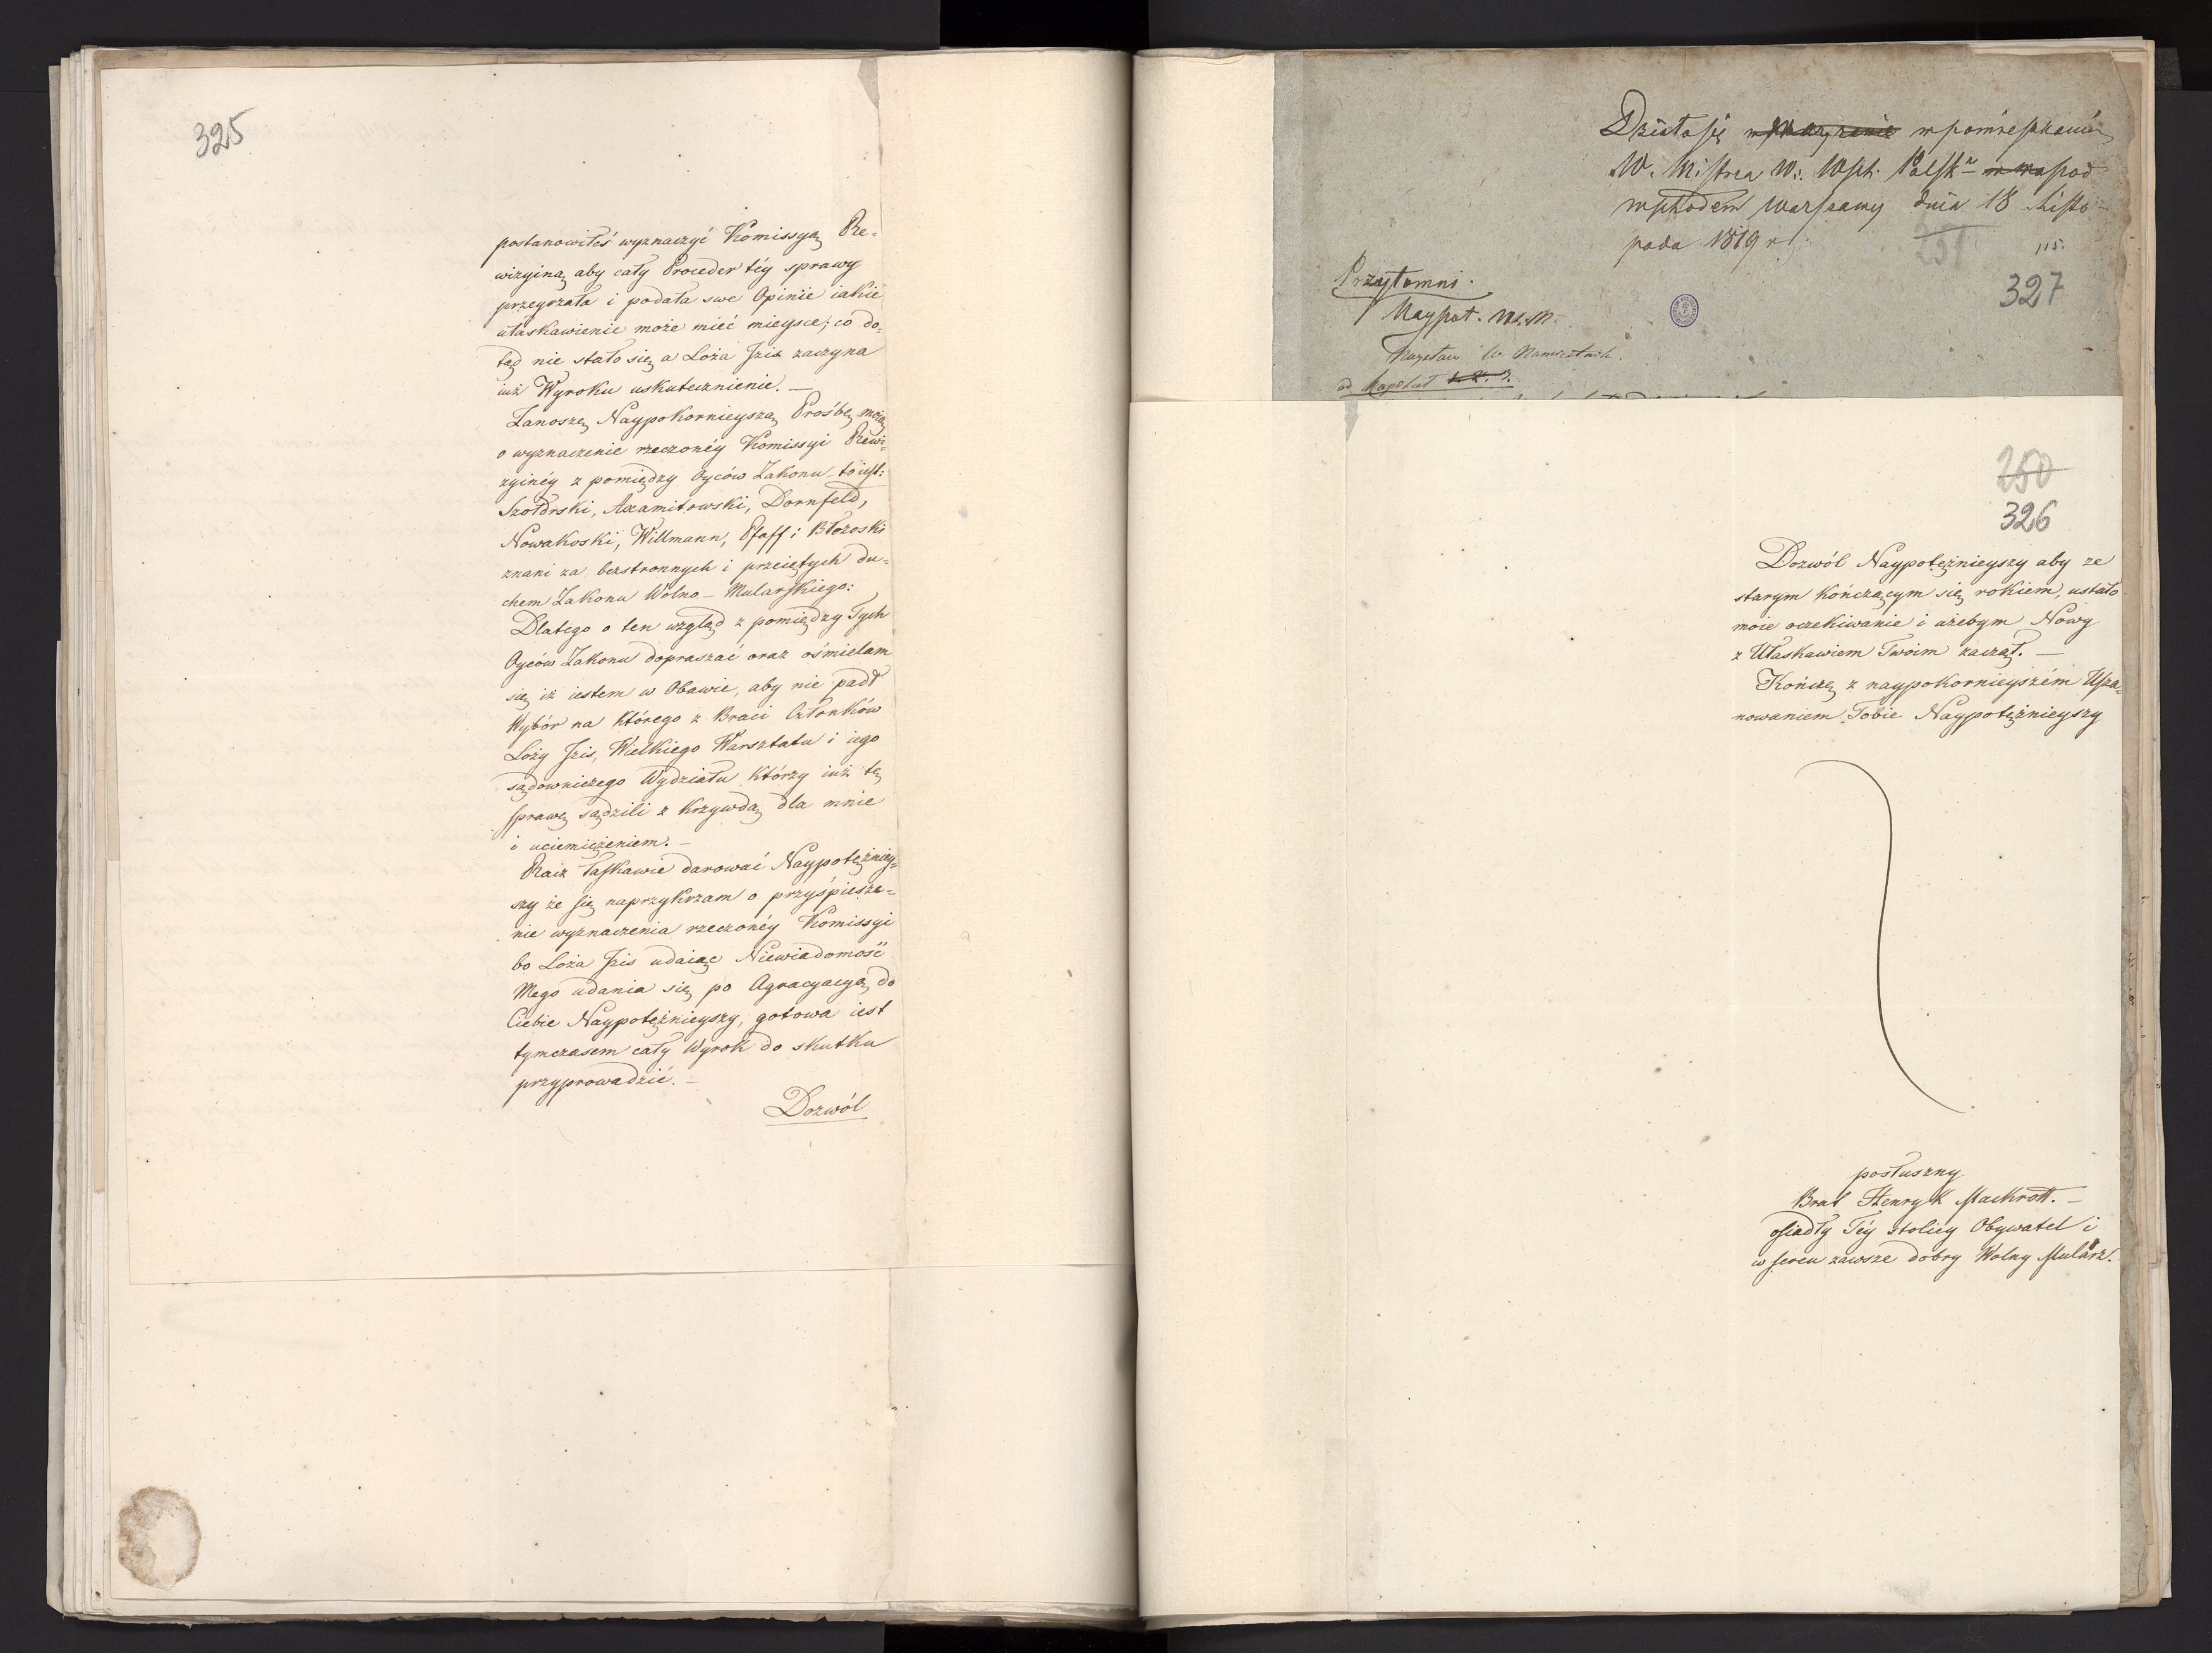 325
postanowiłeś wyznaczyć Komissyą Re=
wizyiną aby cały Proceder téy sprawy
przeyrzała i podała swe Opinie iakie
ułaskawienie może mieć mieysce; co do=
tąd nie stało się a Loża Izis zaczyna
iuż Wyroku uskutecznienie. —
Zanoszę Naypokornieyszą Prośbę moią
o wyznaczenie rzeczonéy Komissyi Rewi=
zyinéy z pomiędzy Oyców Zakonu to iest:
Szołdrski, Axamitowski, Dornfeld,
Nowakoski, Willmann, Pfaff i Błozoski
znani za bezstronnych i przeiętych du=
chem Zakonu Wolno-Mularskiego:
Dlatego o ten wzgląd z pomiędzy Tych
Oyców Zakonu dopraszać oraz ośmielam
się iż iestem w Obawie, aby nie padł
Wybór na którego z Braci Członków
Loży Izis, Wielkiego Warsztatu i iego
sądowniczego Wydziału którzy iuż tę
sprawę sądzili z krzywdą dla mnie
i uciemiężeniem. —
Racz łaskawie darować Naypotężniey=
szy że się naprzykrzam o przyśpiesze=
nie wyznaczenia rzeczonéy Komissyi
bo Loża Izis udaiąc Niewiadomość
Mego udania się po Agracyacyą do
Ciebie Naypotężnieyszy, gotowa iest
tymczasem cały Wyrok do skutku
przyprowadzić. —
Dozwól
Działo się w pomieszkaniu
W. Mistrza W. Wsch. Polsk. pod
wschodem Warszawy dnia 18 Listo-
pada 1819 r.
251
115.
327
Przytomni.
Naypot. W. M.
W. Namiestnik.
Kapituł
250
326
Dozwól Naypotężnieyszy aby ze
starym kończącym się rokiem, ustało
moie oczekiwanie i ażebym Nowy
z Ułaskawiem Twoim zaczął. —
Kończę z naypokornieyszém Usza=
nowaniem Tobie Naypotężnieyszy
posłuszny
Brat Henryk Mackrott. —
osiadły Téy stolicy Obywatel i
w sercu zawsze dobry Wolny Mularz.